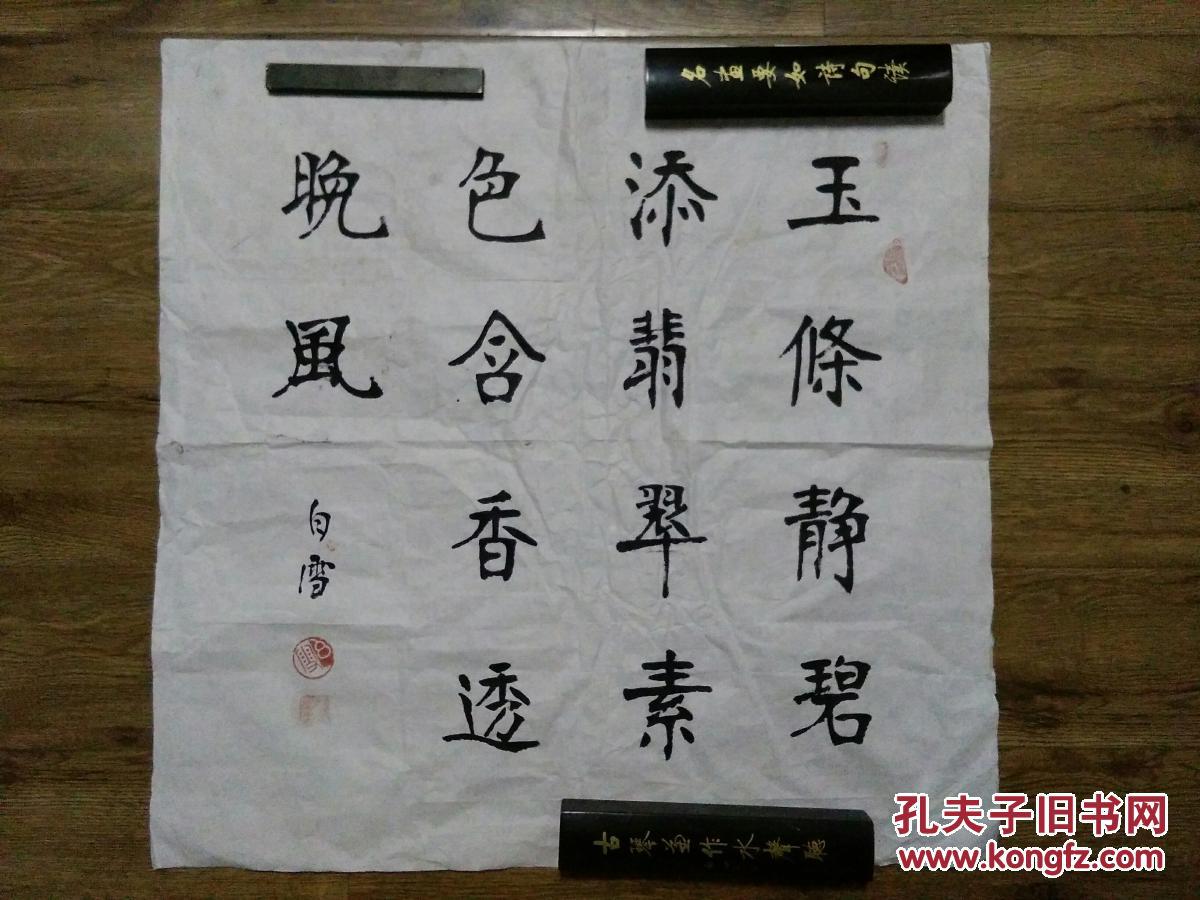 玉條静碧
添翡翠素
色含香透
晚風
白雪
名畫要如詩句讀
古琴兼作水聲聽
孔夫子旧书网
www.kongfz.com